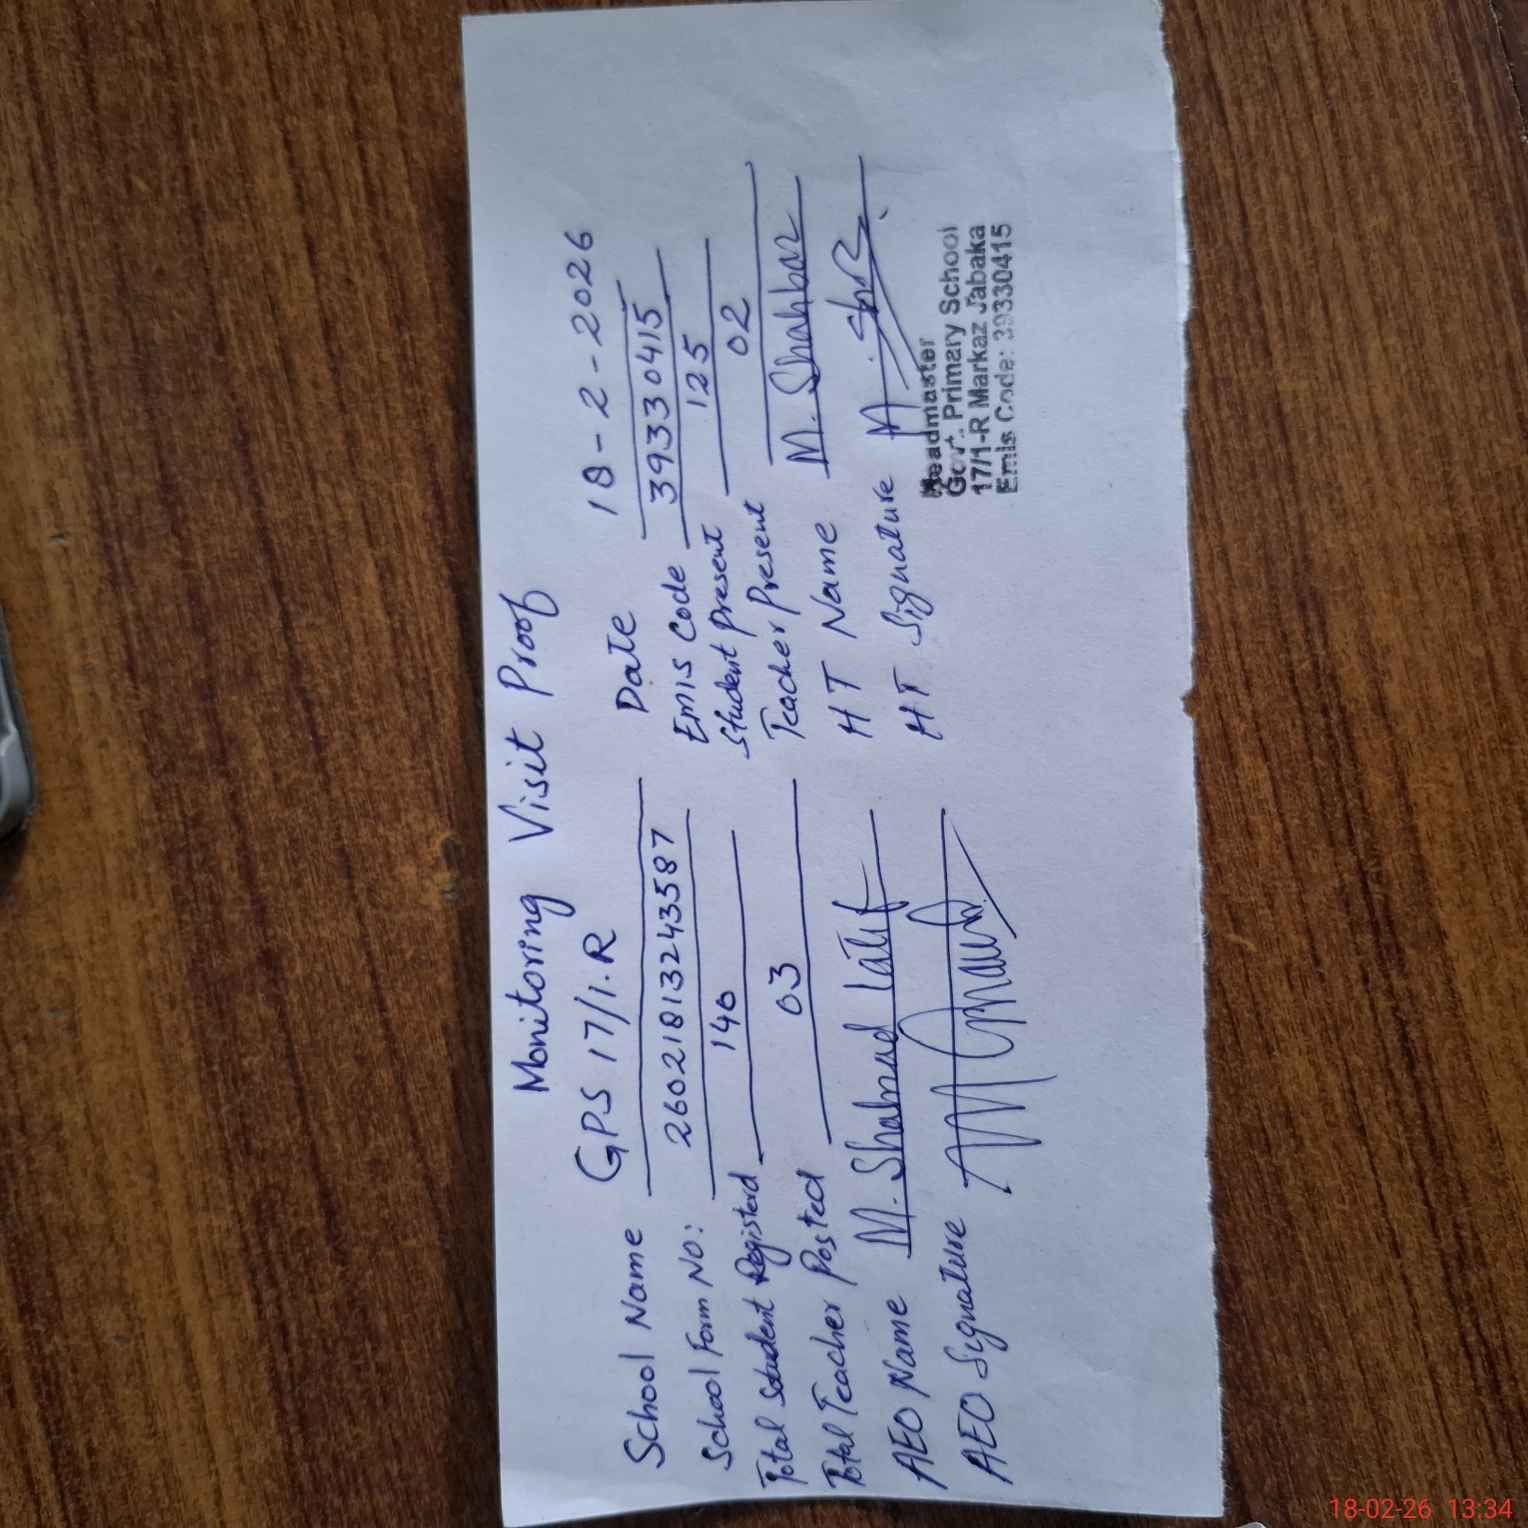 Monitoring Visit Proof
School Name GPS 17/1.R Date 18-2-2026
School Form No: 260218132435 87 Emis Code 39330415
Total Student Registerd 140 Student Present 125
Total Teacher Posted 03 Teacher Present 02
AEO Name M. Shahzad Latif HT Name M. Shahbaz
AEO Signature HT Signature
Headmaster
Govt. Primary School
17/1-R Markaz Jabaka
Emis Code: 39330415
18-02-26 13:34